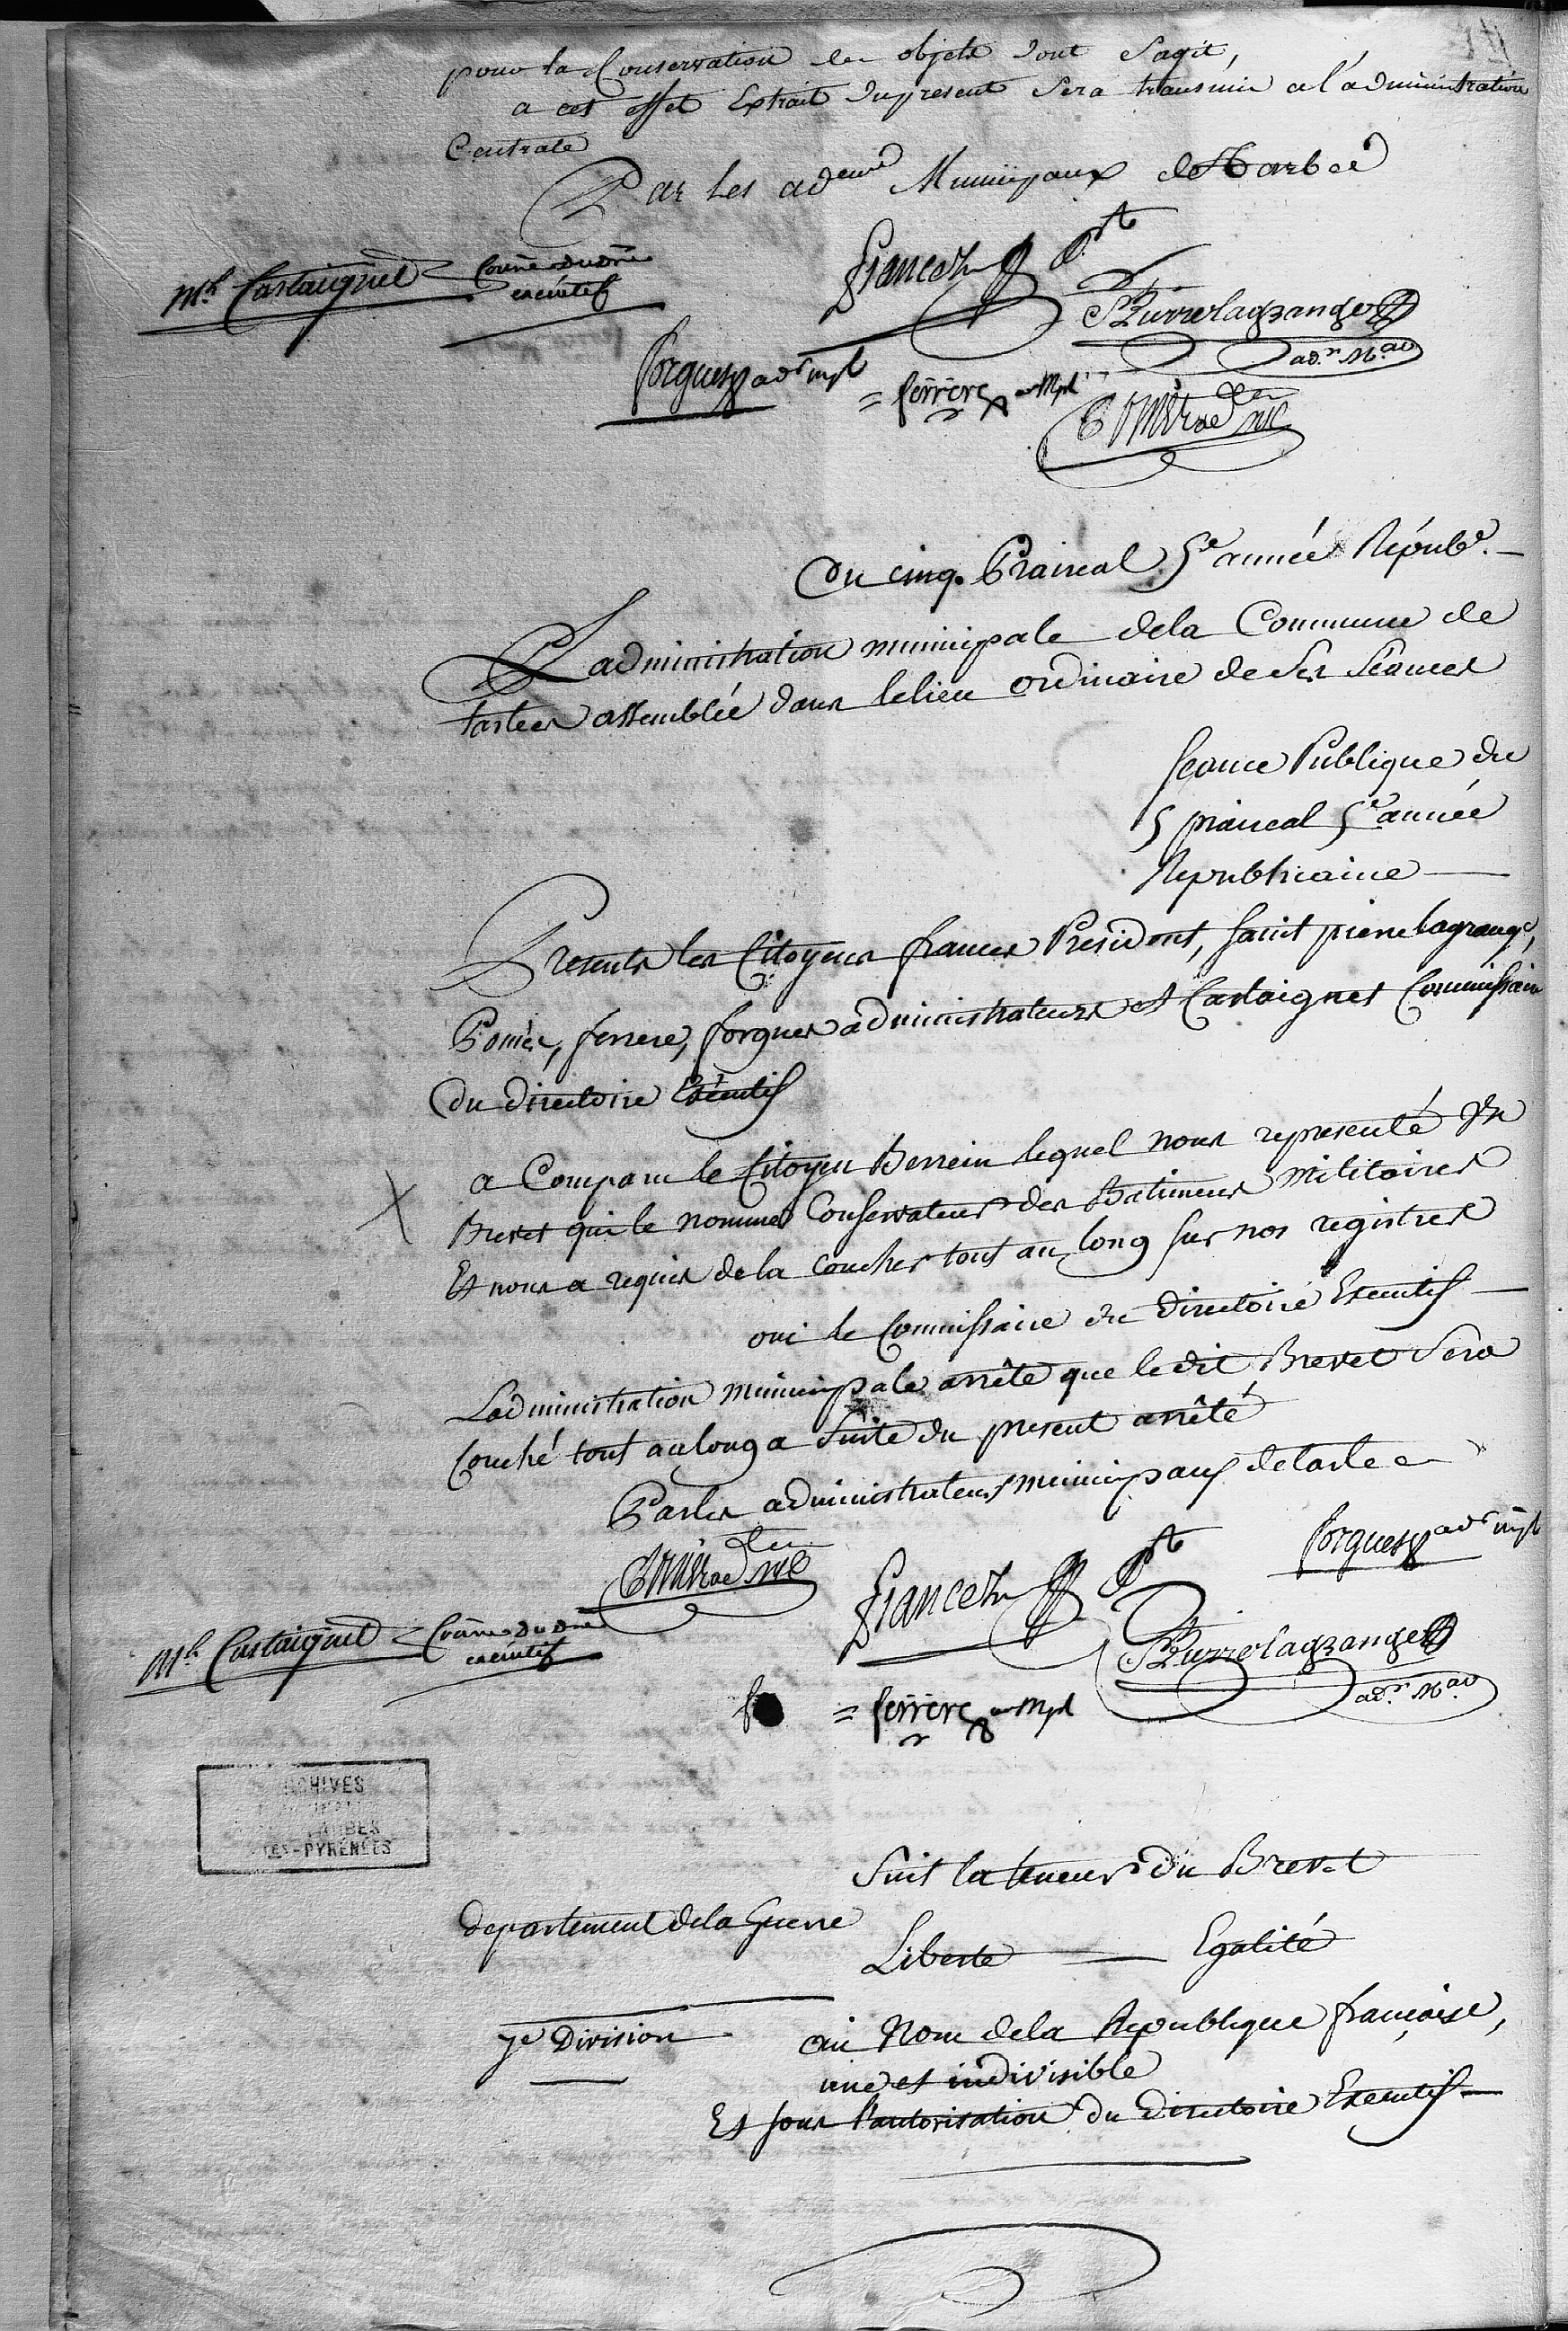 pour la Conservation des objets dont Sagit,
a cet effet Extrait du present Sera transmis a l'administration
Centrale
Par les adeurs Municipaux de Tarbes
Mel Castaignet Comre du dre
executif
francez Pt
St Pierrelagrange
adr Mal
forgues adr mpl
= ferrere adr Mpl
Du cinq. Prairial 5e année Républe. —
L'administration municipale dela Commune de
tarbes assemblée dans le lieu ordinaire de Ses Séances
Seance Publique du
5 prairial 5e année
Republicaine —
Presents les Citoyens francez President, saint pierre lagrange,
Pomès, ferrere, forgues administrateurs et Castaignet Commissaire
du directoire Exécutif
a Comparu le Citoyen Berrein lequel nous representé un
Brevet qui le nomme Conservateur des Batimens Militaires
Et nous a requis de la coucher tout au long sur nos registres
oui le Commissaire du Directoire Executif —
Ladministration municipale arrête que le dit Brevet Sera
Couché tout au long a Suite du present arrêté
Par les administrateurs municipaux de tarbes
forgues adr mpl
francez Pt
Mel Castaignet Comre du dre
executif
St Pierrelagrange
adr Mal
fo
= ferrere adr Mpl
ARCHIVES
TARBES
TES-PYRÉNÉES
Suit la teneur du Brevet
departement dela Guerre
Liberte — Egalité
7e Division
au Nom dela Republique françoise,
une et indivisible
Et sous l'autorisation du Directoire Executif —